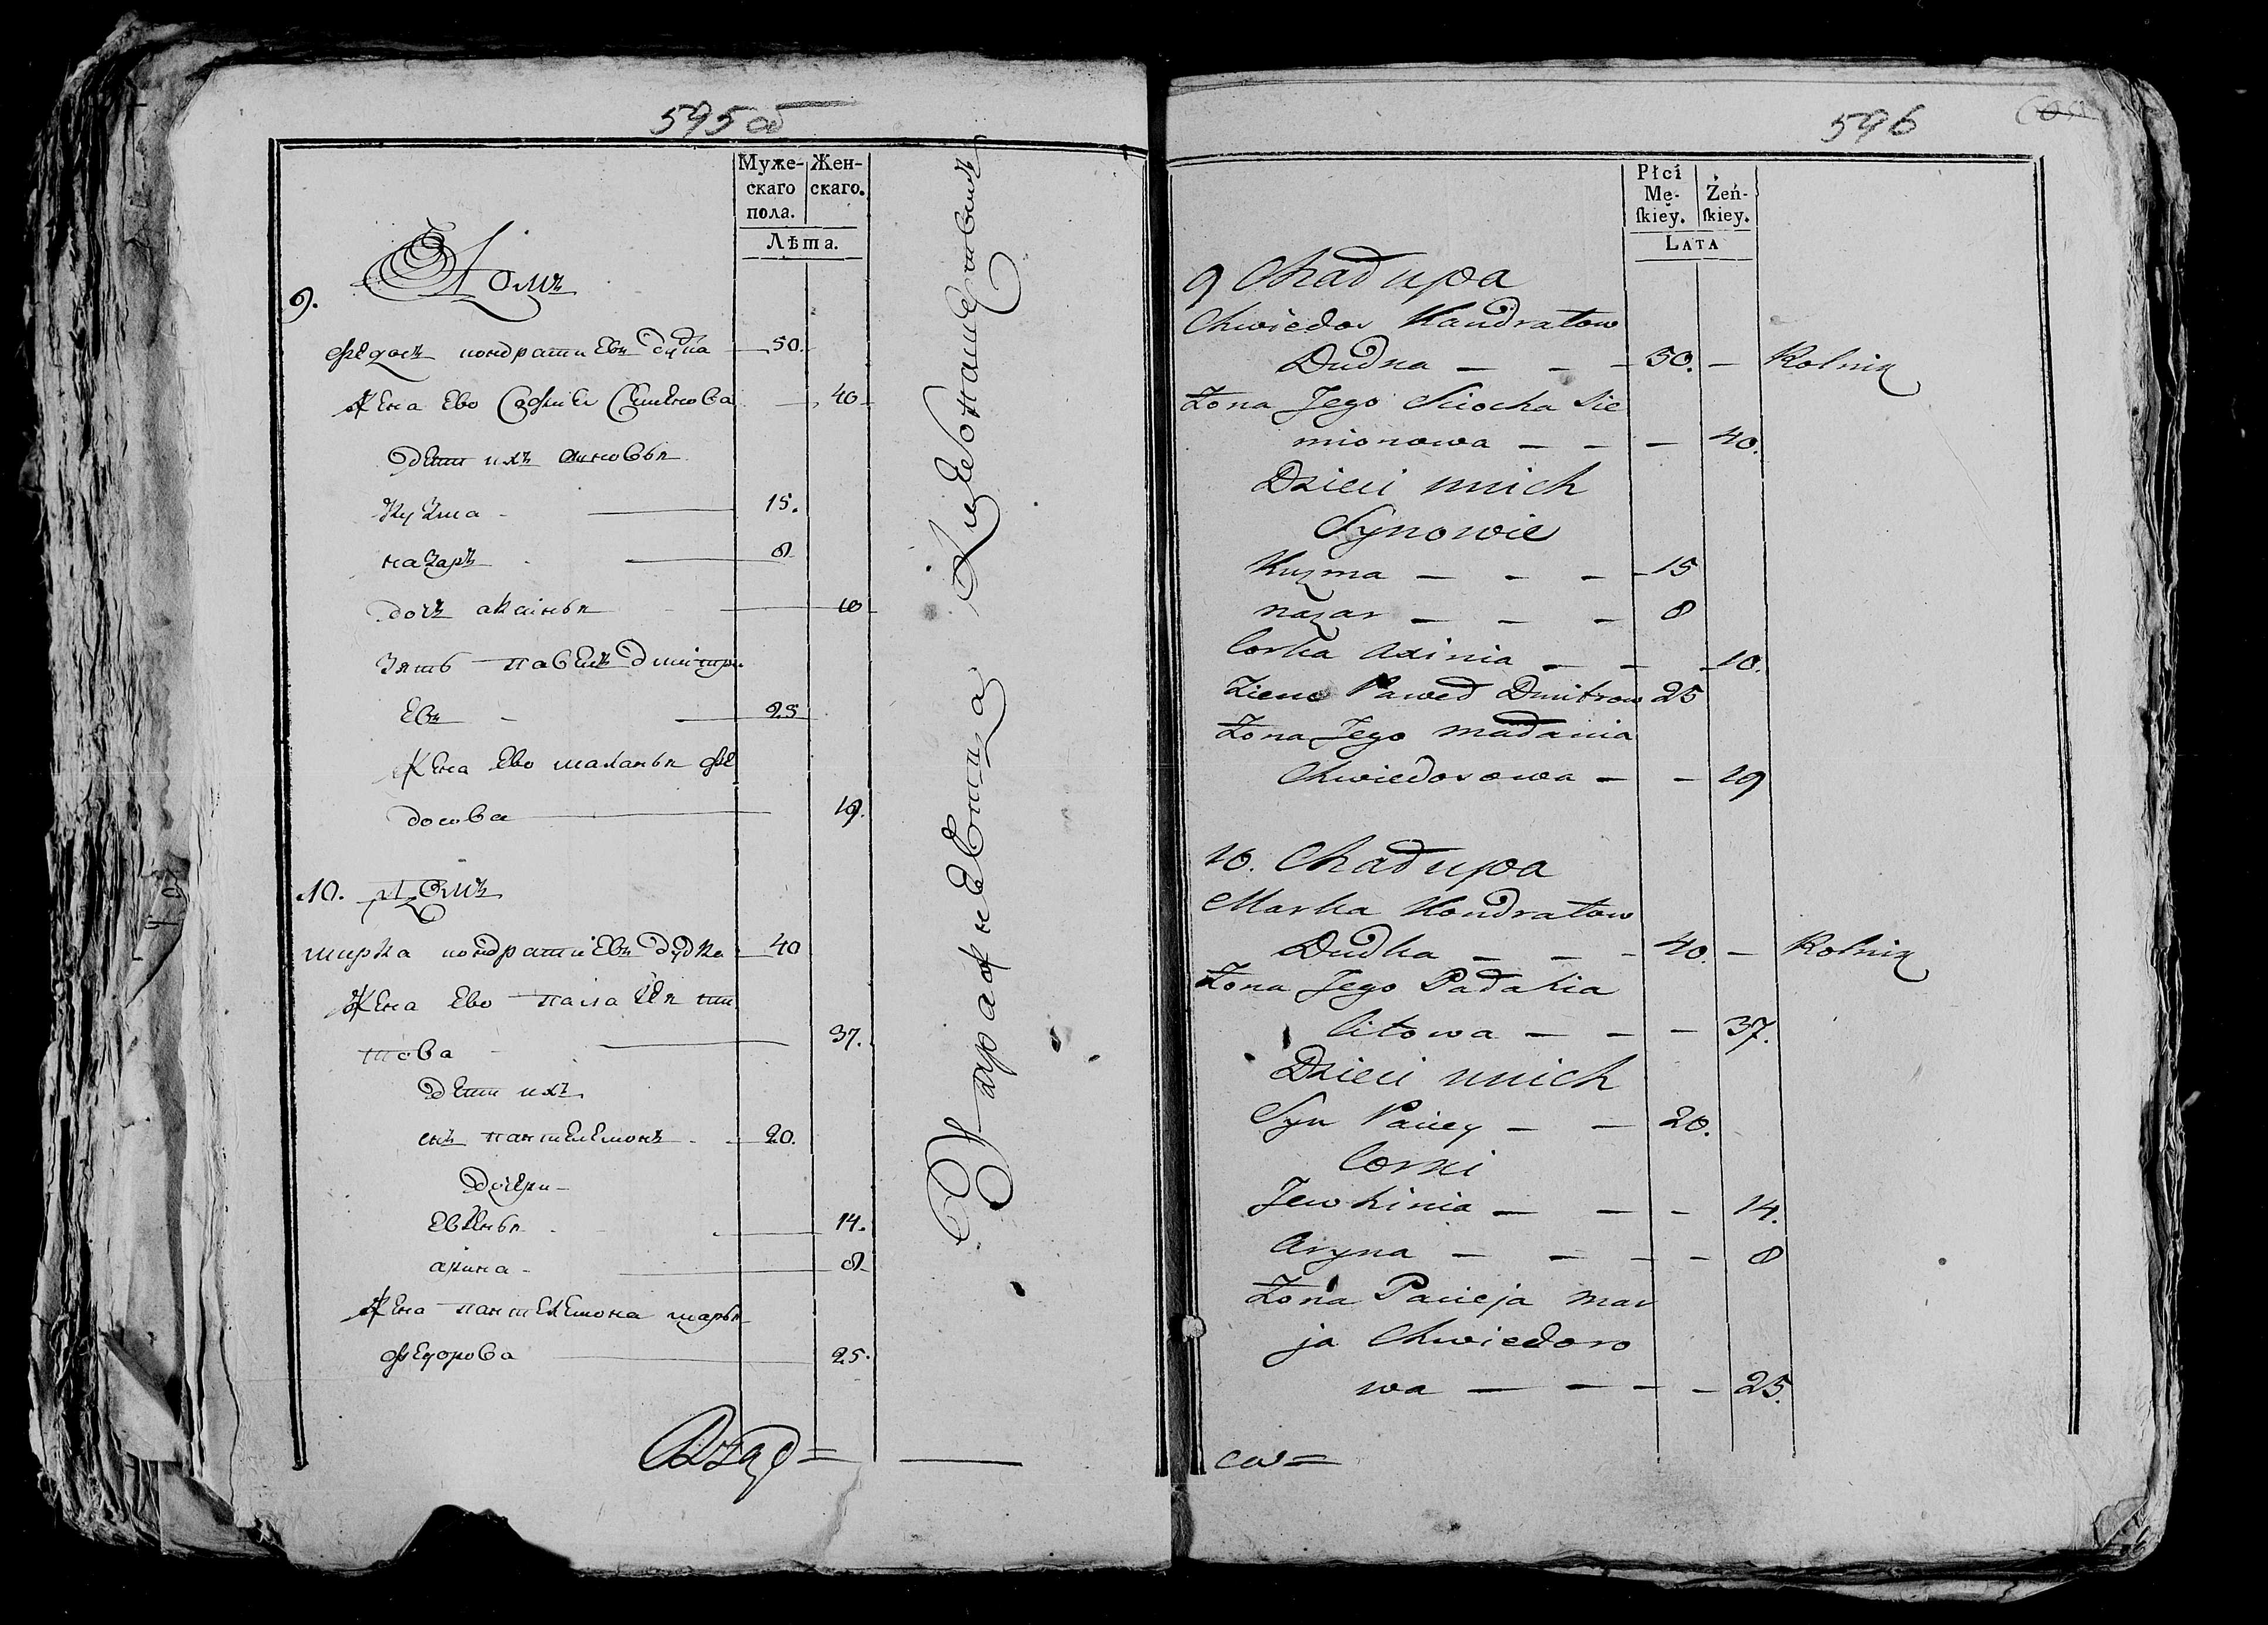 595об
Муже-
скаго
пола.
Жен-
скаго.
Лѣта.
9. Домъ
Федосъ кондратиевъ дудка 50.
Жена Ево Софья Семенова 40
дети ихъ сыновья
кузма 15.
назаръ 8
дочъ аксинья 10
зять павелъ дмитри
евъ 25
Жена Ево маланья фе
досова 19.
10. Домъ
марка кондратиевъ дудка 40
Жена Ево палагея ти
това 37.
дети ихъ
снъ пантелемонъ 20.
дочери
евгенья 14.
арина 8
Жена пантелемона марья
федорова 25.
Rząd =
596
Płci
Mę-
ſkiey.
Żeń-
ſkiey.
LATA
9 Chałupa
Chwiedos Kandratow
Dudka — — 50. — Rolnik
Żona Jego Sciocha Sie
mionowa — — — 40.
Dzieci unich
Synowie
Kuzma — — — 15
nazar — — — 8
Corka Axinia — — 10.
Zienc Paweł Dmitrow 25
Żona Jego małania
Chwiedosowa — — 19
10. Chałupa
Marka Kondratow
Dudka — — — 40. — Rolnik
Żona Jego Pałahia
Citowa — — — 37.
Dzieci unich
Syn Paciey — — 20.
Corki
Jewhinia — — — 14.
Aryna — — — — 8
Żona Pacieja mar
ja Chwiedoro
wa — — — — 25.
ca =